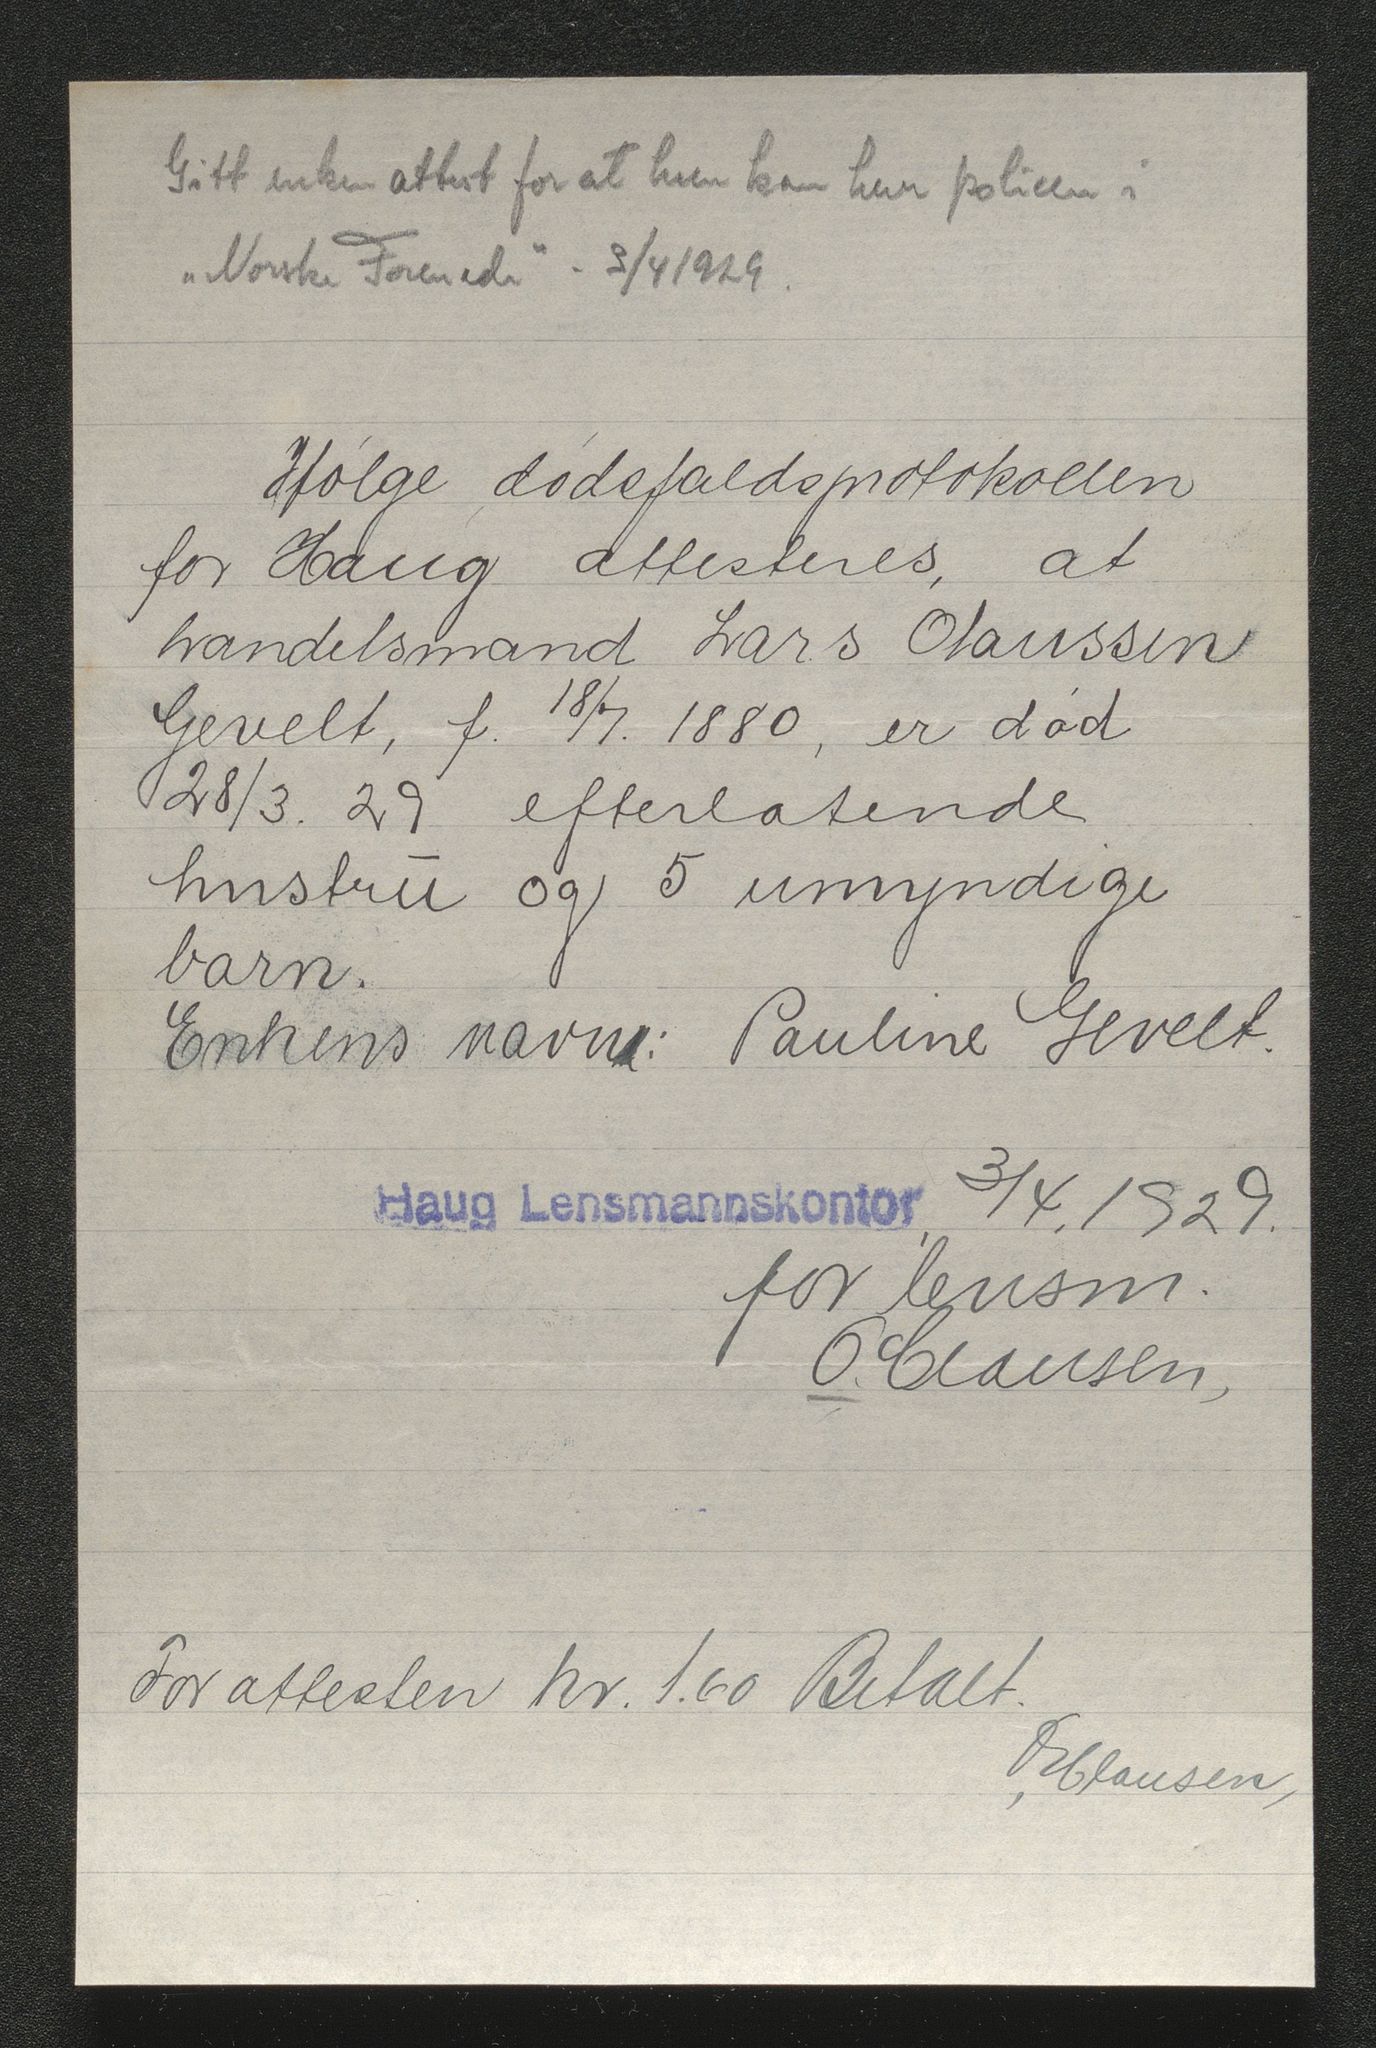 Gitt enken attest for at hun kan heve policen i
"Norske Forenede" - 3/4 1929.
Ifølge dødsfaldsprotokollen
for Haug attesteres, at
handelsmand Lars Olaussen
Gevelt, f. 18/7. 1880, er død
28/3. 29 efterlatende
hustru og 5 umyndige
barn.
Enkens navn: Pauline Gevelt.
Haug Lensmannskontor, 3/4. 1929.
for lensm.
O. Clausen,
For attesten kr. 1.60 Betalt.
O. Clausen,